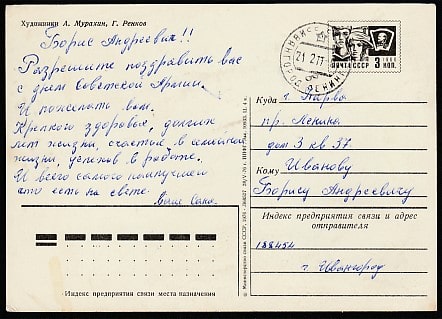 Художники А. Мурахин, Г. Ренков
Борис Андреевич!!
Разрешите поздравить вас
с днём Советской Армии.
И пожелать вам.
Крепкого здоровья, долгих
лет жизни, счастия в семейной
жизни, успехов в работе.
И всего самого наилучшего
что есть на свете.
Ваше Саша.
Индекс предприятия связи места назначения
ПОЧТА СССР 3 КОП.
1966
21 2 77
Куда г. Нарва
пр. Ленина
дом 3 кв. 37.
Кому Иванову
Борису Андреевичу
Индекс предприятия связи и адрес
отправителя
188454
г. Ивангород